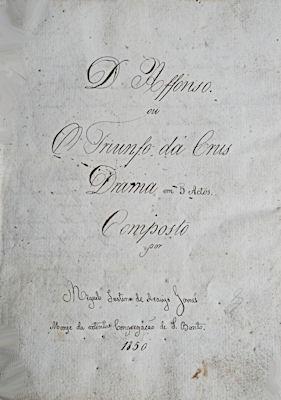 D. Affonso.
ou
O Triunfo da Crus
Drama em 5 Actos.
Composto
por
Miguel Justino de Araujo Gomes
Monge da extincta Congregação de S. Bento.
1850